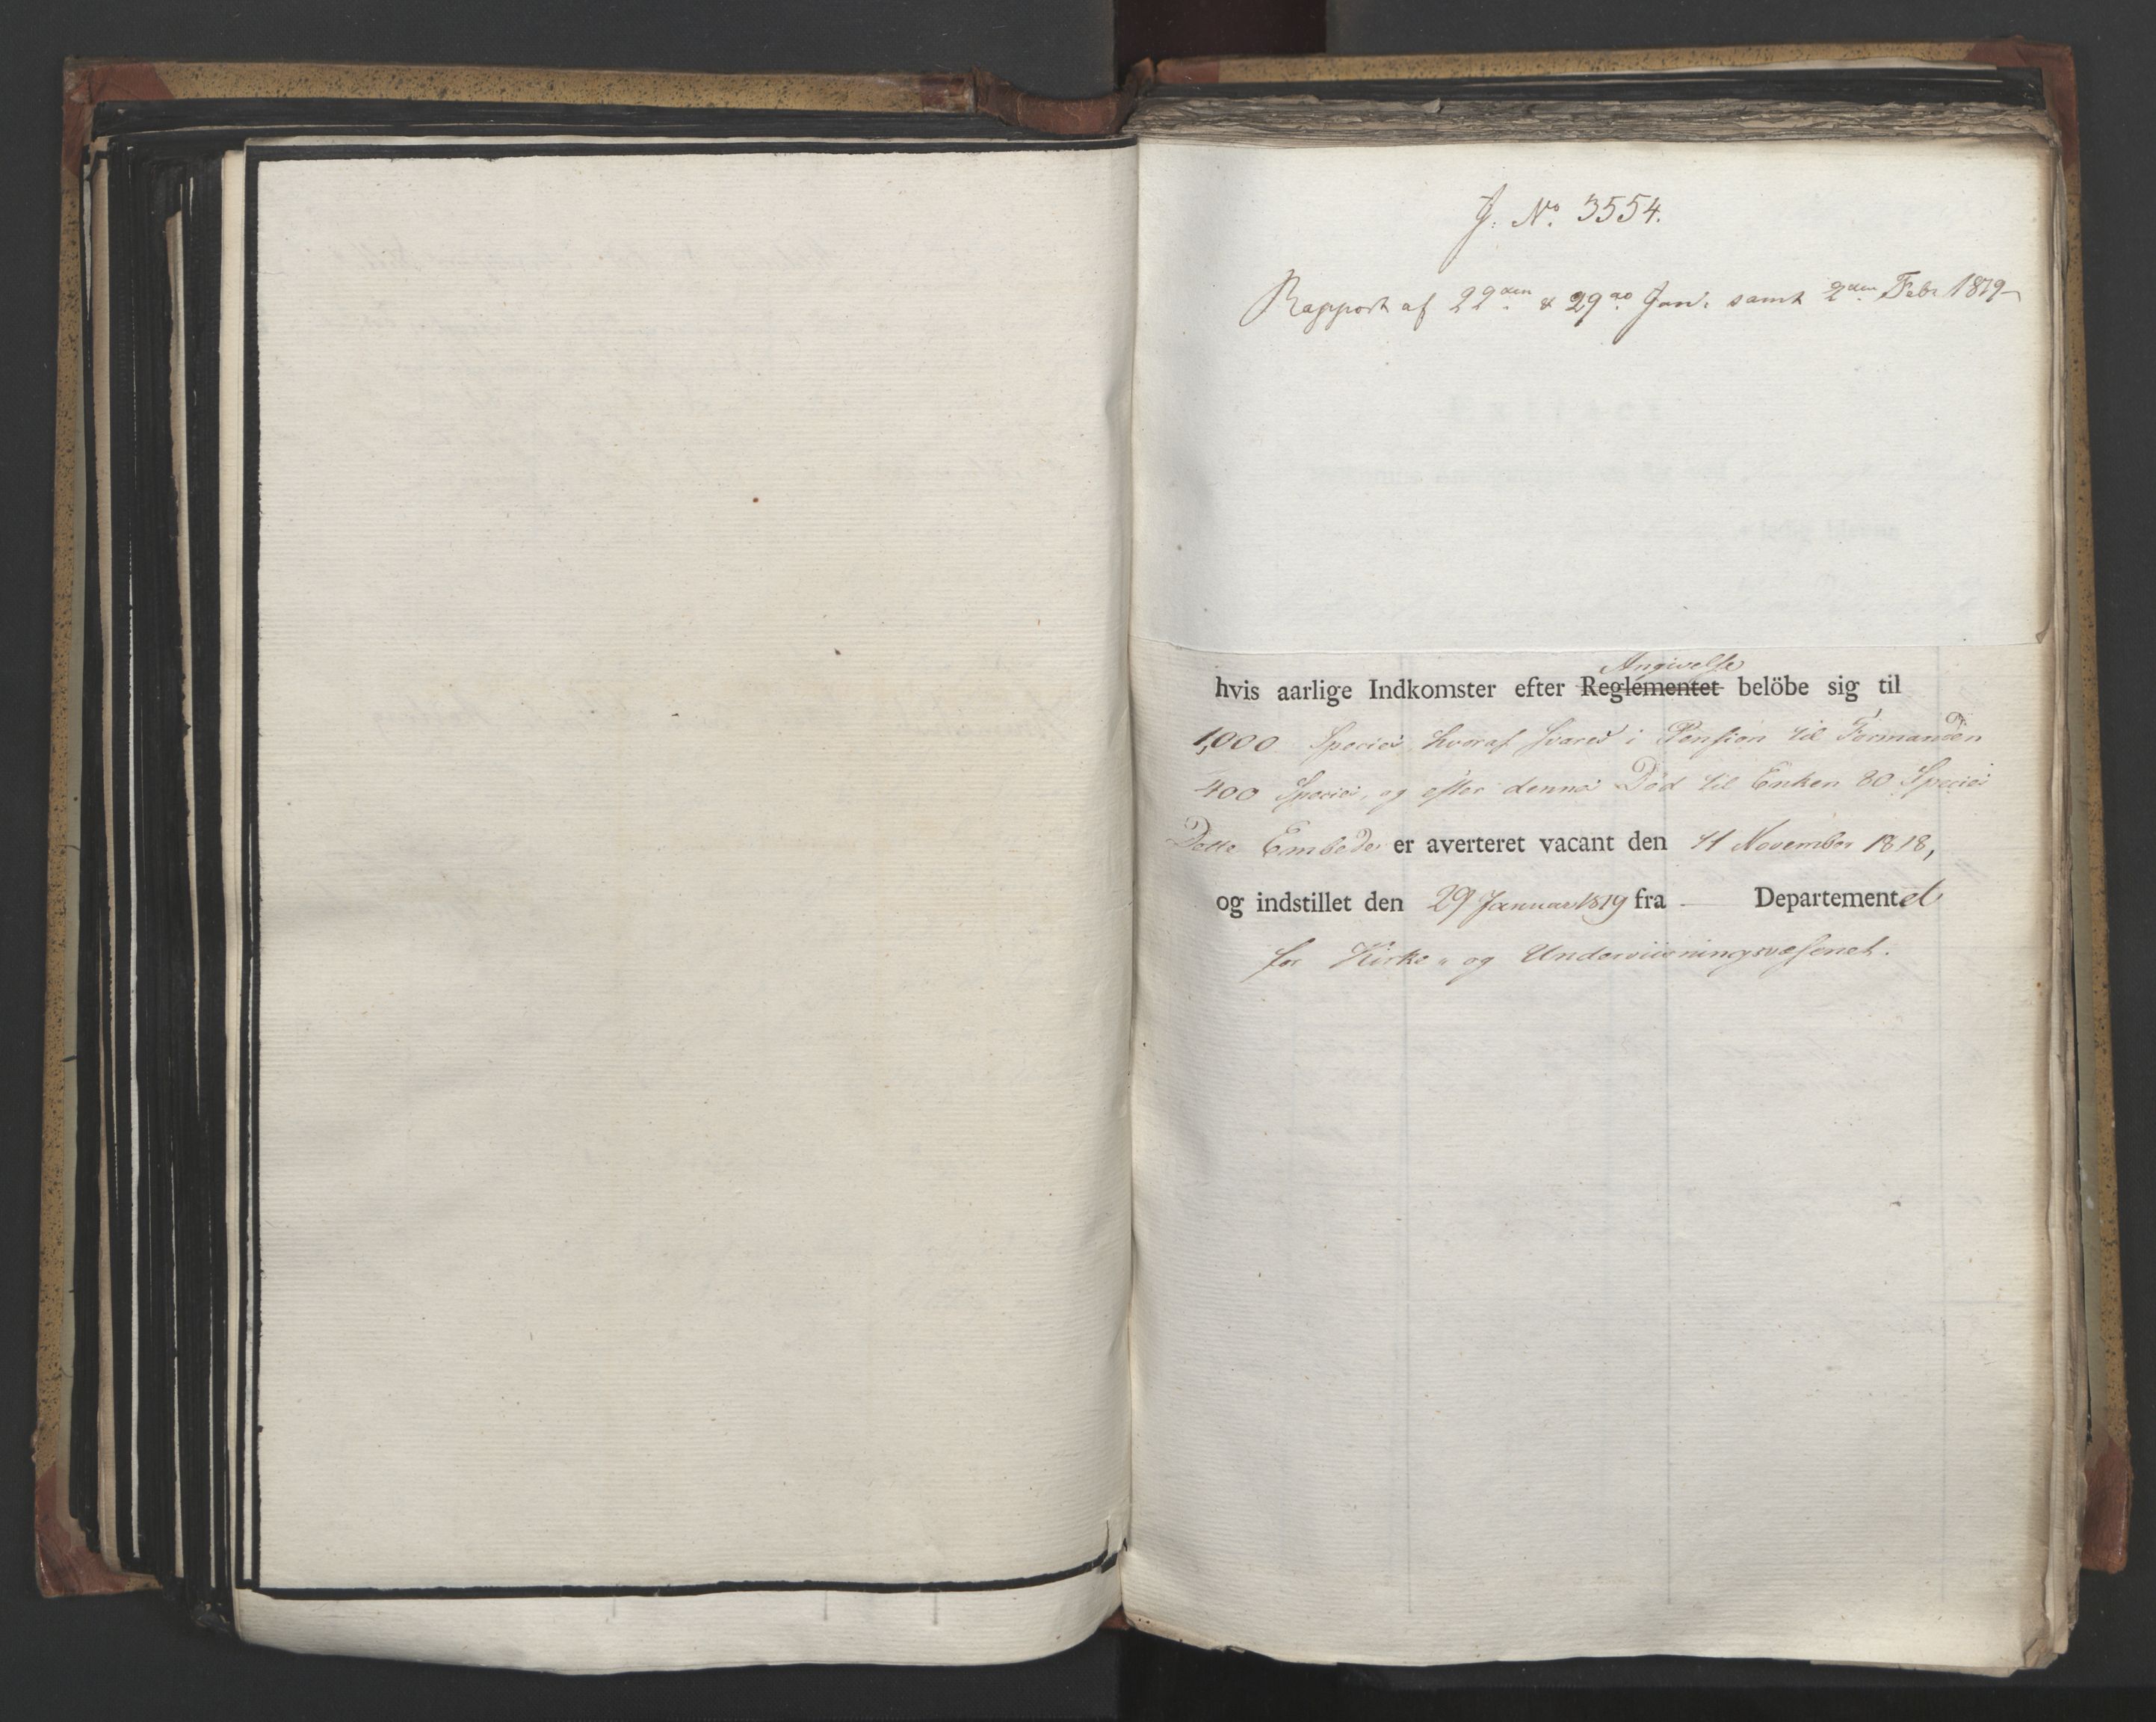 J. No. 3554.
Rapport af 22den & 29de Jan: samt 2den Febr 1819
Angivelse
hvis aarlige Indkomster efter Reglementet belöbe sig til
1,000 Species hvoraf svares i Pension til Formanden
400 Species, og efter dennes Död til Enken 80 Species
Dette Embede er averteret vacant den 11 November 1818,
og indstillet den 29 Januar 1819 fra Departementet
for Kirke- og Underviisningsvæsenet.